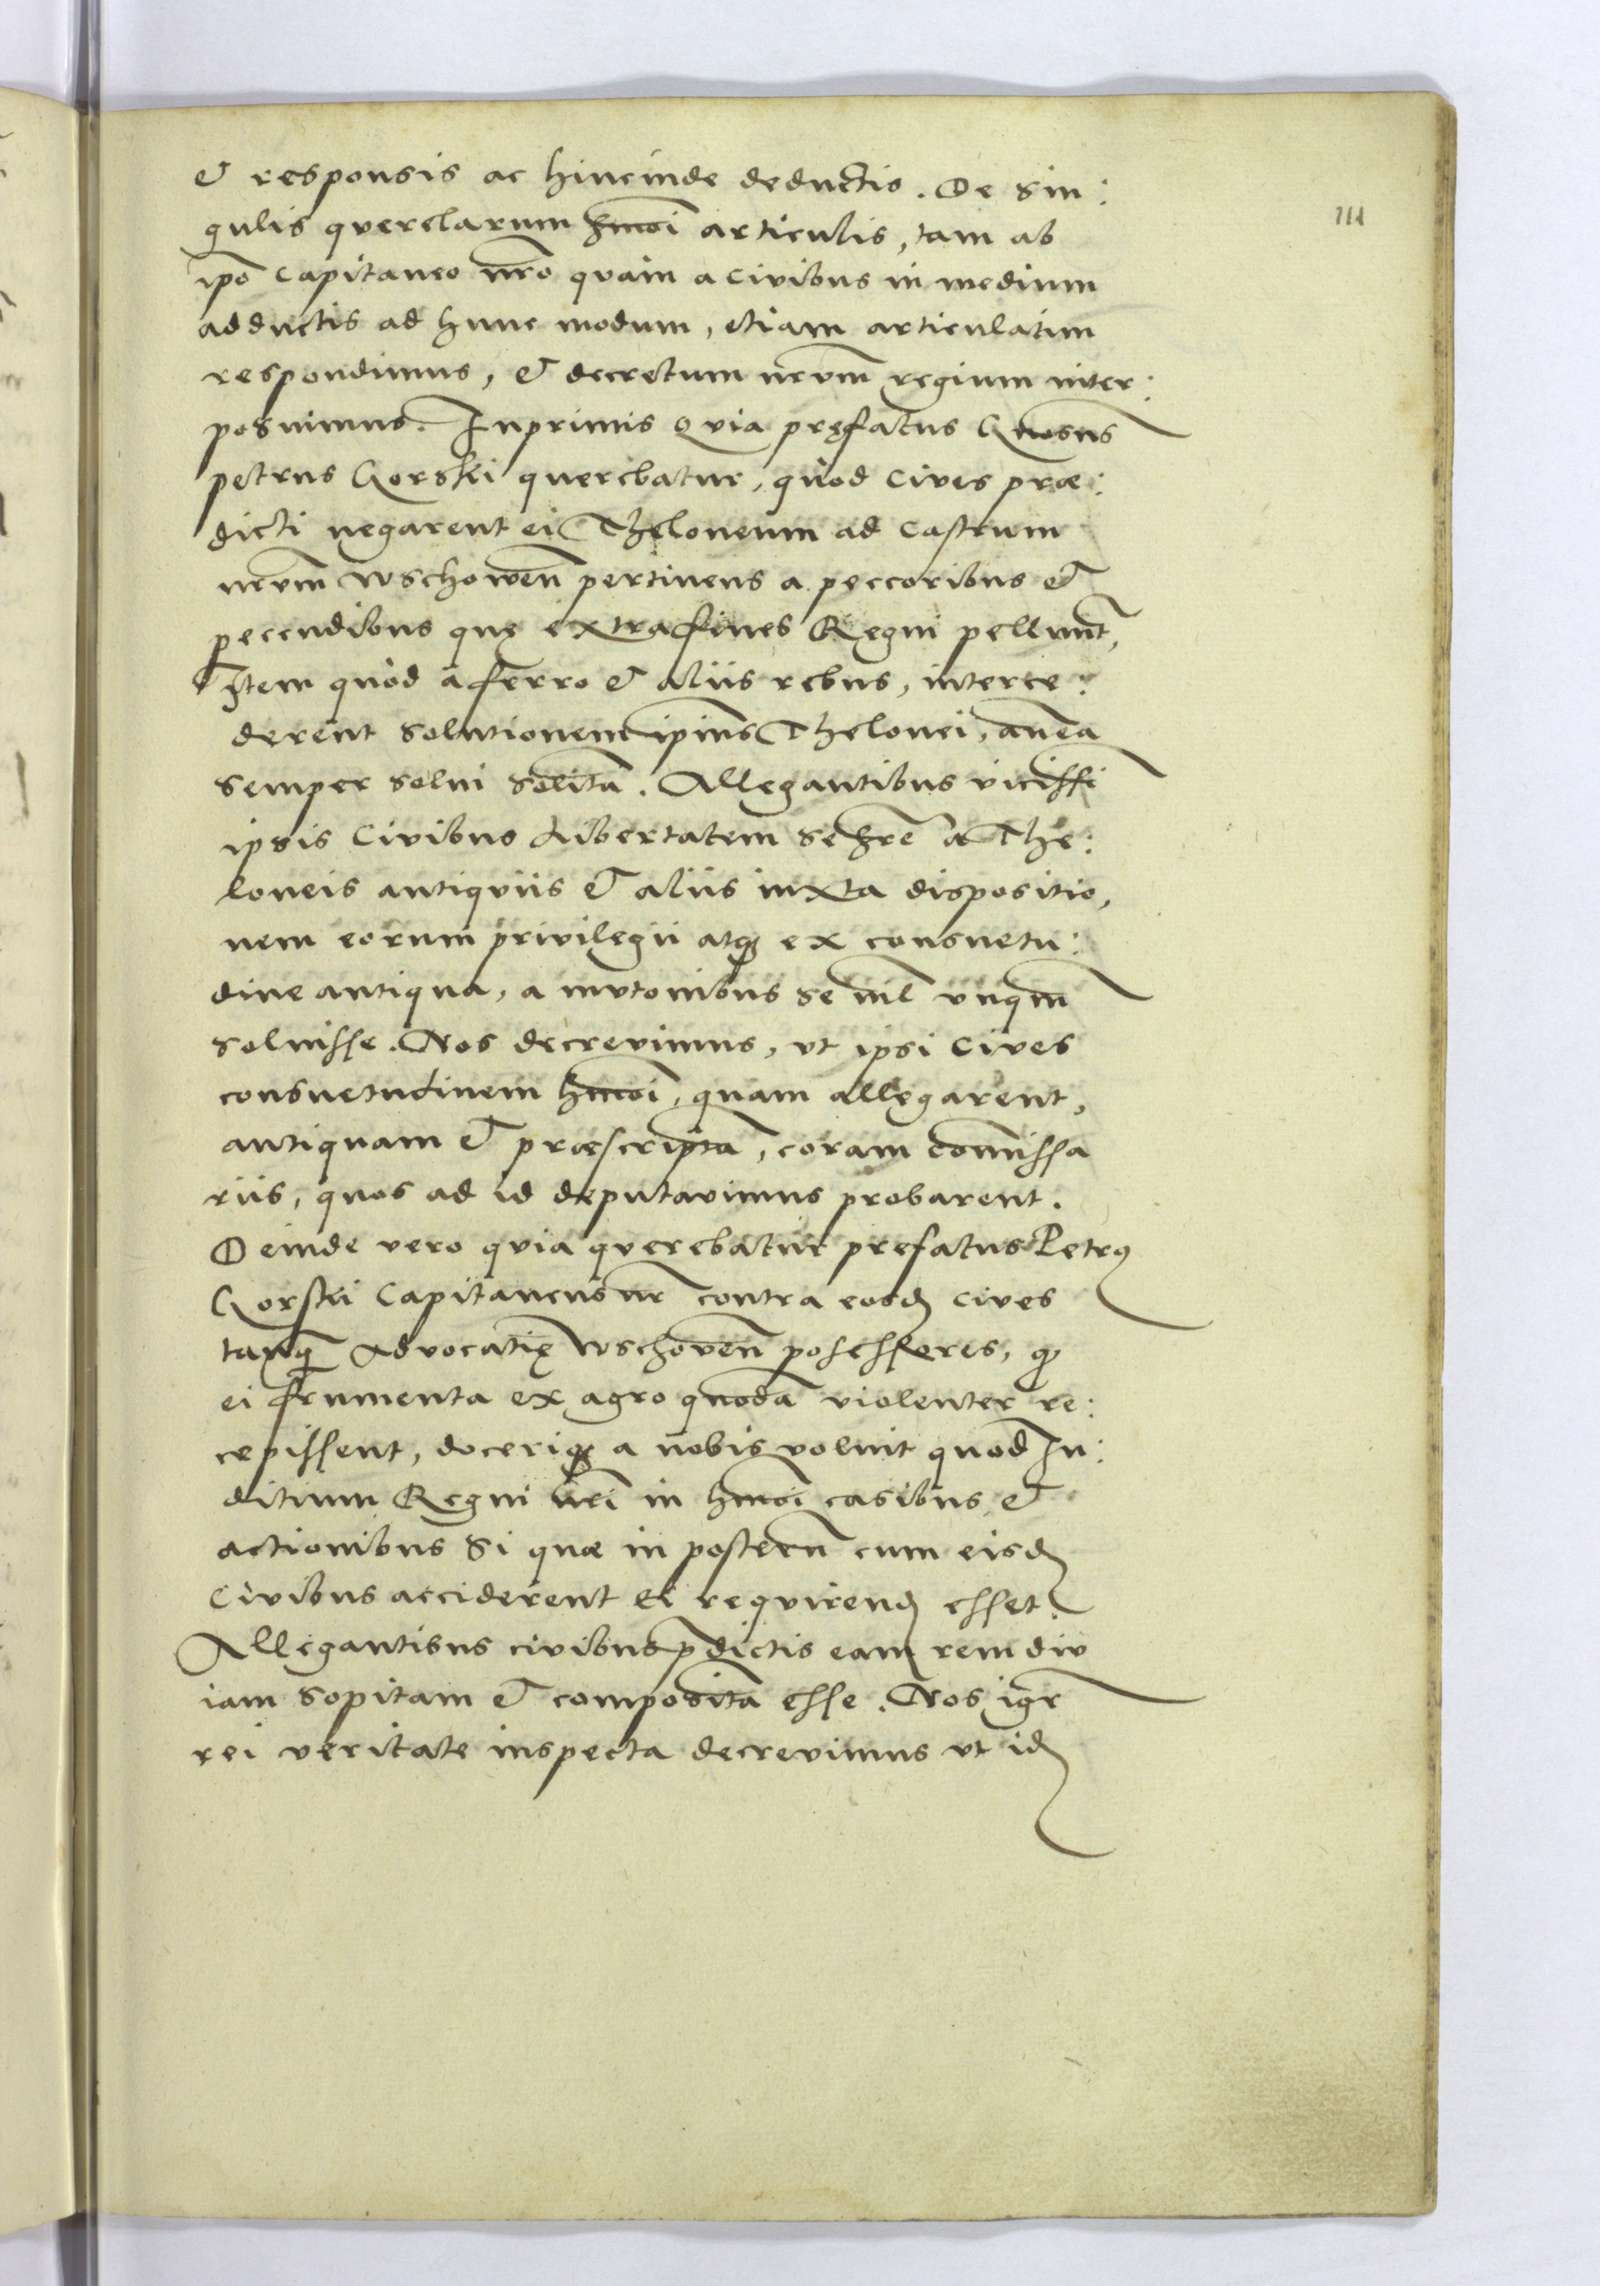 111
& responsis ac hincinde deductis. De sin:
gulis querelarum hmōi articulis, tam ab
ipō Capitaneo nrō quam a Civibus in medium
adductis ad hunc modum, etiam articulatim
respondimus, & decretum nrvm̄ regium inter:
posuimus. Inprimis Quia pręfatus Gnosus
petrus Gorski querebatur, quod Cives præ:
dicti negarent ei Theloneum ad Castrum
nrvm̄ Wschowēn pertinens a peccoribus &
pecudibus quę extra fines Regni pelluntr,
Item quòd à ferro & aliis rebus, interce:
derent solutionem ipiu̅s Thelonei, antea
semper solui solitā. Allegantibus vicissi
ipsis Civibus Libertatem se hrē à The:
loneis antiquis & aliis iuxta dispositio,
nem eorum privilegii atq3 ex consuetu:
dine antiqua, a mutonibus se nil̄ vnqm̄
soluisse. Nos decrevimus, vt ipsi Cives
consuetudinem hmōi, quam allegarent,
antiquam & præscriptā, coram com̄issa
riis, quos ad id deputavimus probarent.
Deinde vero quia querebatur prefatus Petrꝰ
Gorski Capitaneus nr̄ contra eosd Cives
tanq̄ Advocatię Wschovēn possessores, ꝙ
ei frumenta ex agro quodā violenter re:
cepissent, doceriq3 a nobis voluit quod Iu:
ditium Regni nrī in hmōi casibus &
actionibus si quæ in posterū cum eisd
Civibus acciderent ei requirend esset.
Allegantibus civibus p̄dictis eam rem diu
iam sopitam & compositā esse. Nos igr̄
rei veritate inspecta decrevimus vt id